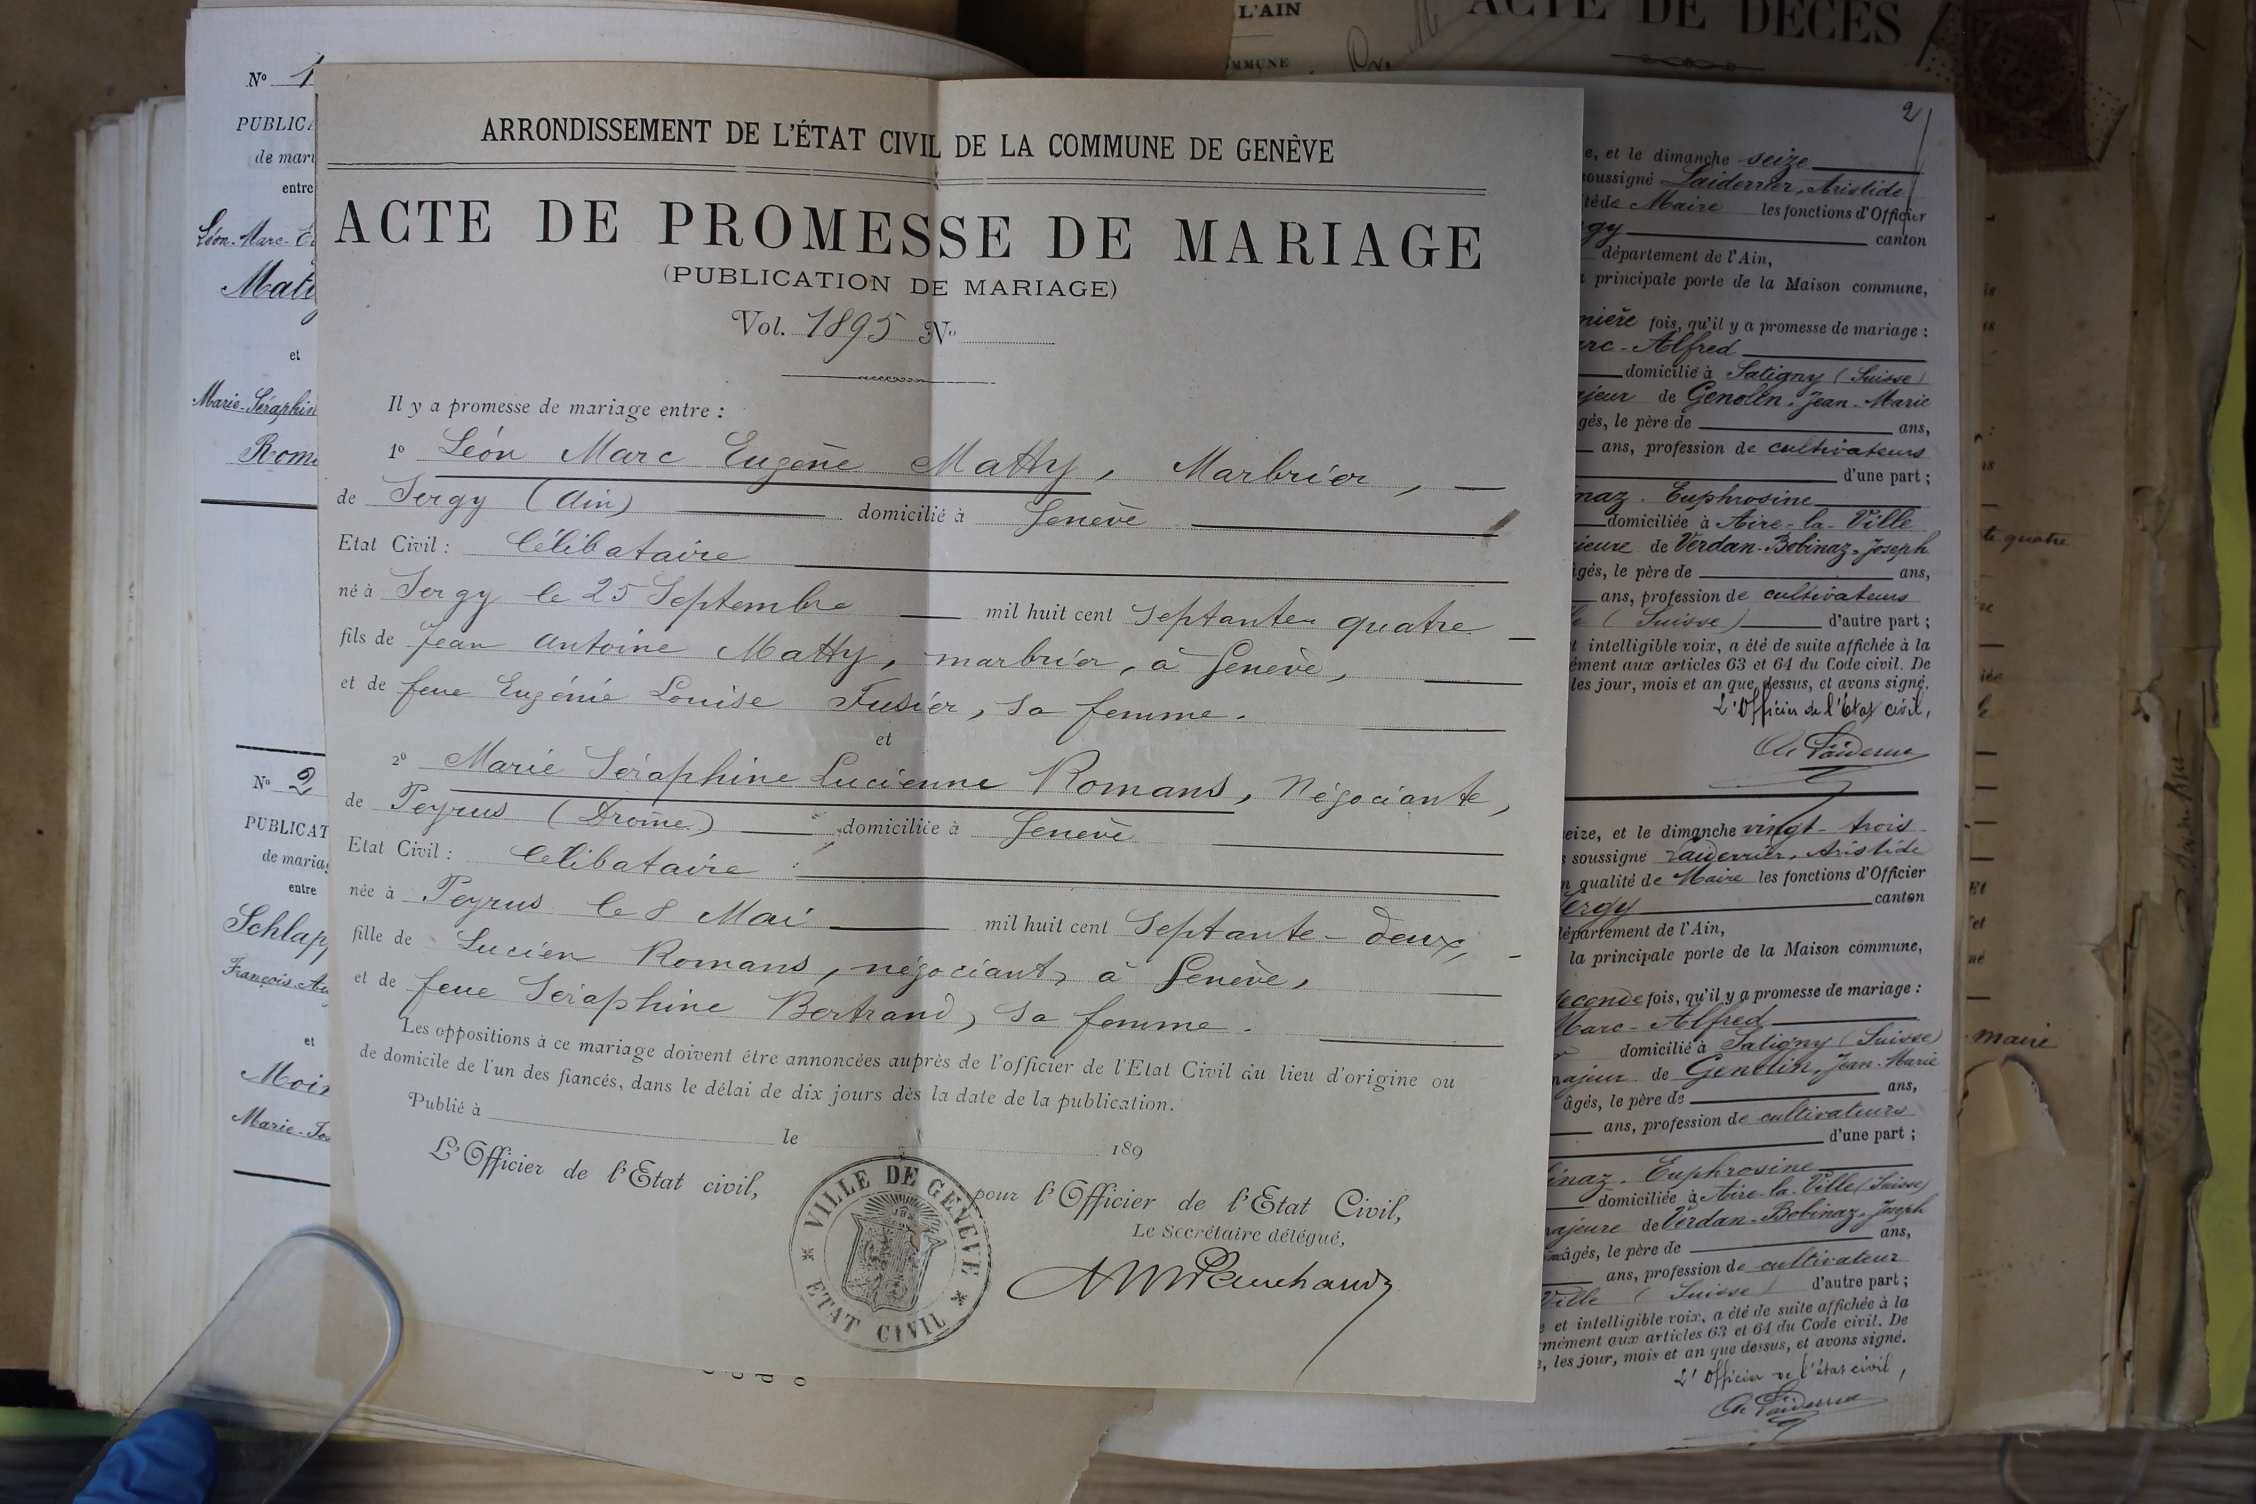 L'AIN
MMUNE
ACTE DE DÉCÈS
ARRONDISSEMENT DE L'ÉTAT CIVIL DE LA COMMUNE DE GENÈVE
ACTE DE PROMESSE DE MARIAGE
(PUBLICATION DE MARIAGE)
Vol. 1895 No
Il y a promesse de mariage entre :
1o Léon Marc Eugène Matty, Marbrier,
de Sergy (Ain) domicilié à Genève
Etat Civil : Célibataire
né à Sergy le 25 Septembre mil huit cent septante quatre
fils de Jean Antoine Matty, marbrier, à Genève,
et de feue Eugénie Louise Fusier, sa femme.
et
2o Marie Séraphine Lucienne Romans, Négociante,
de Peyrus (Drôme) domiciliée à Genève
Etat Civil : Célibataire
née à Peyrus le 8 Mai mil huit cent Septante-deux,
fille de Lucien Romans, négociant, à Genève,
et de feue Séraphine Bertrand, sa femme.
Les oppositions à ce mariage doivent être annoncées auprès de l'officier de l'Etat Civil du lieu d'origine ou
de domicile de l'un des fiancés, dans le délai de dix jours dès la date de la publication.
Publié à le 189
L'Officier de l'Etat civil,
pour l'Officier de l'Etat Civil,
Le Secrétaire délégué,
VILLE DE GENEVE
ETAT CIVIL
No 1
PUBLICA
de mari
entre
Léon-Marc-E
Mat
et
Marie-Séraphin
Rom
No 2
PUBLICAT
de mariag
entre
Schlap
François-Au
et
Moin
Marie-Jo
2
e, et le dimanche seize
soussigné Laiderrier, Aristide
té de Maire les fonctions d'Officier
gy canton
département de l'Ain,
principale porte de la Maison commune,
mière fois, qu'il y a promesse de mariage :
arc-Alfred
domicilié à Satigny (Suisse)
ajeur de Genolin, Jean-Marie
gés, le père de ans,
ans, profession de cultivateurs
d'une part ;
naz. Euphrosine
domiciliée à Aire-la-Ville
jeure de Verdan-Bobinaz, Joseph
âgés, le père de ans,
ans, profession de cultivateurs
(Suisse) d'autre part ;
t intelligible voix, a été de suite affichée à la
ément aux articles 63 et 64 du Code civil. De
les jour, mois et an que dessus, et avons signé.
L'Officier de l'Etat civil,
eize, et le dimanche vingt-trois
soussigné Laiderrier, Aristide
n qualité de Maire les fonctions d'Officier
ergy canton
département de l'Ain,
la principale porte de la Maison commune,
seconde fois, qu'il y a promesse de mariage :
Marc-Alfred
domicilié à Satigny (Suisse)
majeur de Genolin, Jean-Marie
âgés, le père de ans,
ans, profession de cultivateurs
d'une part ;
binaz. Euphrosine
domiciliée à Aire-la-Ville (Suisse)
majeure de Verdan-Bobinaz, Joseph
âgés, le père de ans,
ans, profession de cultivateur
Ville (Suisse) d'autre part ;
et intelligible voix, a été de suite affichée à la
rmément aux articles 63 et 64 du Code civil. De
, les jour, mois et an que dessus, et avons signé.
L'Officier de l'état civil,
te quatre
maire